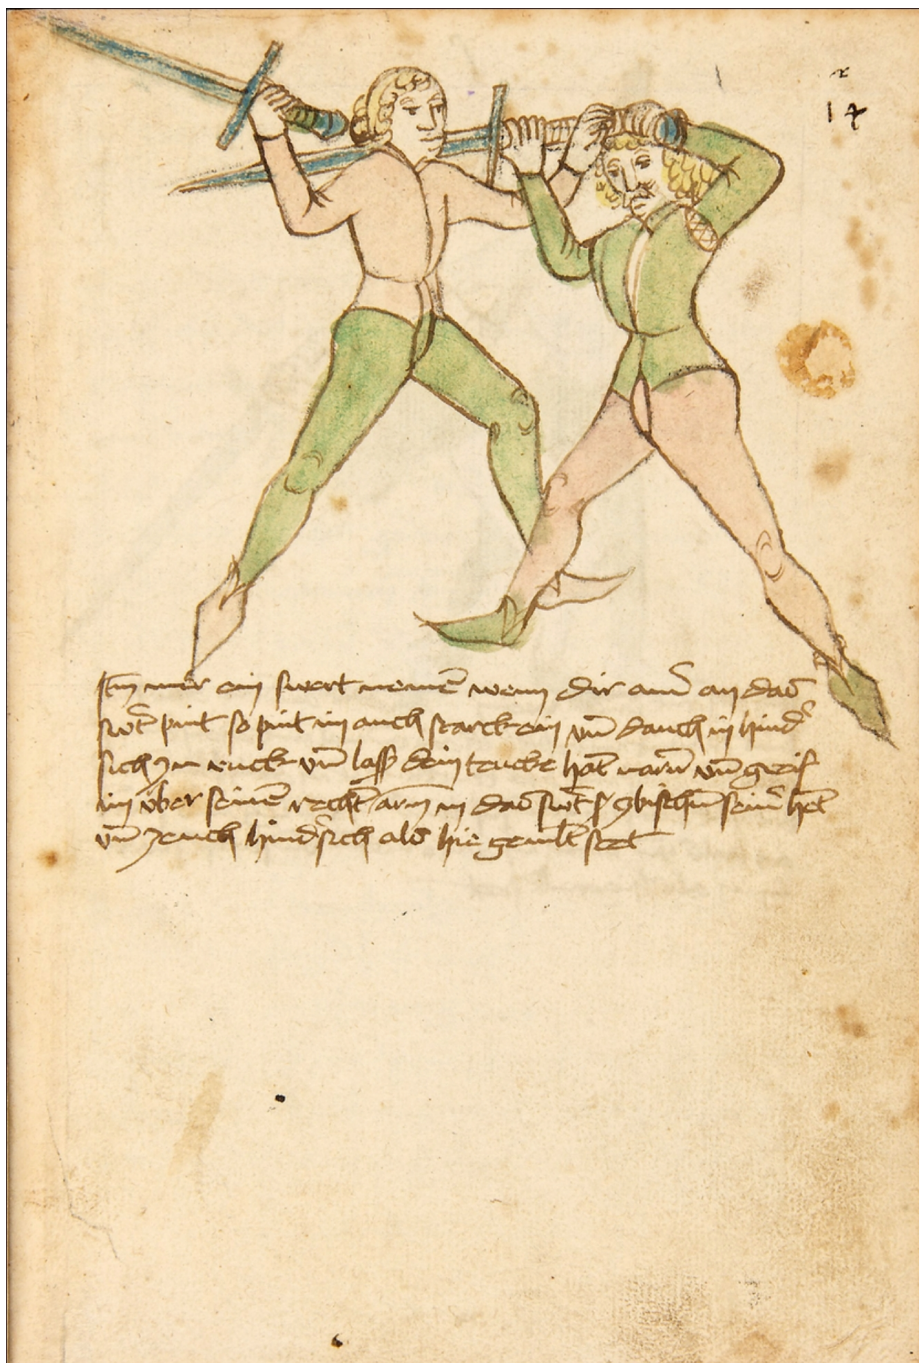 14
Itm mer ein swert nemē wenn dir ainr an das
swt̄ pint so pint im auch starck ein vn̄ dauch in hindr̄
sich zu ruck vn̄ lasß dein lincke hāt varn̄ vn̄ greif
im vber seinē recht̄ arm in das swt̄ zbischn̄ seinr̄ hēt
vn̄ zeuch hindr̄sich als hie gemlt stet